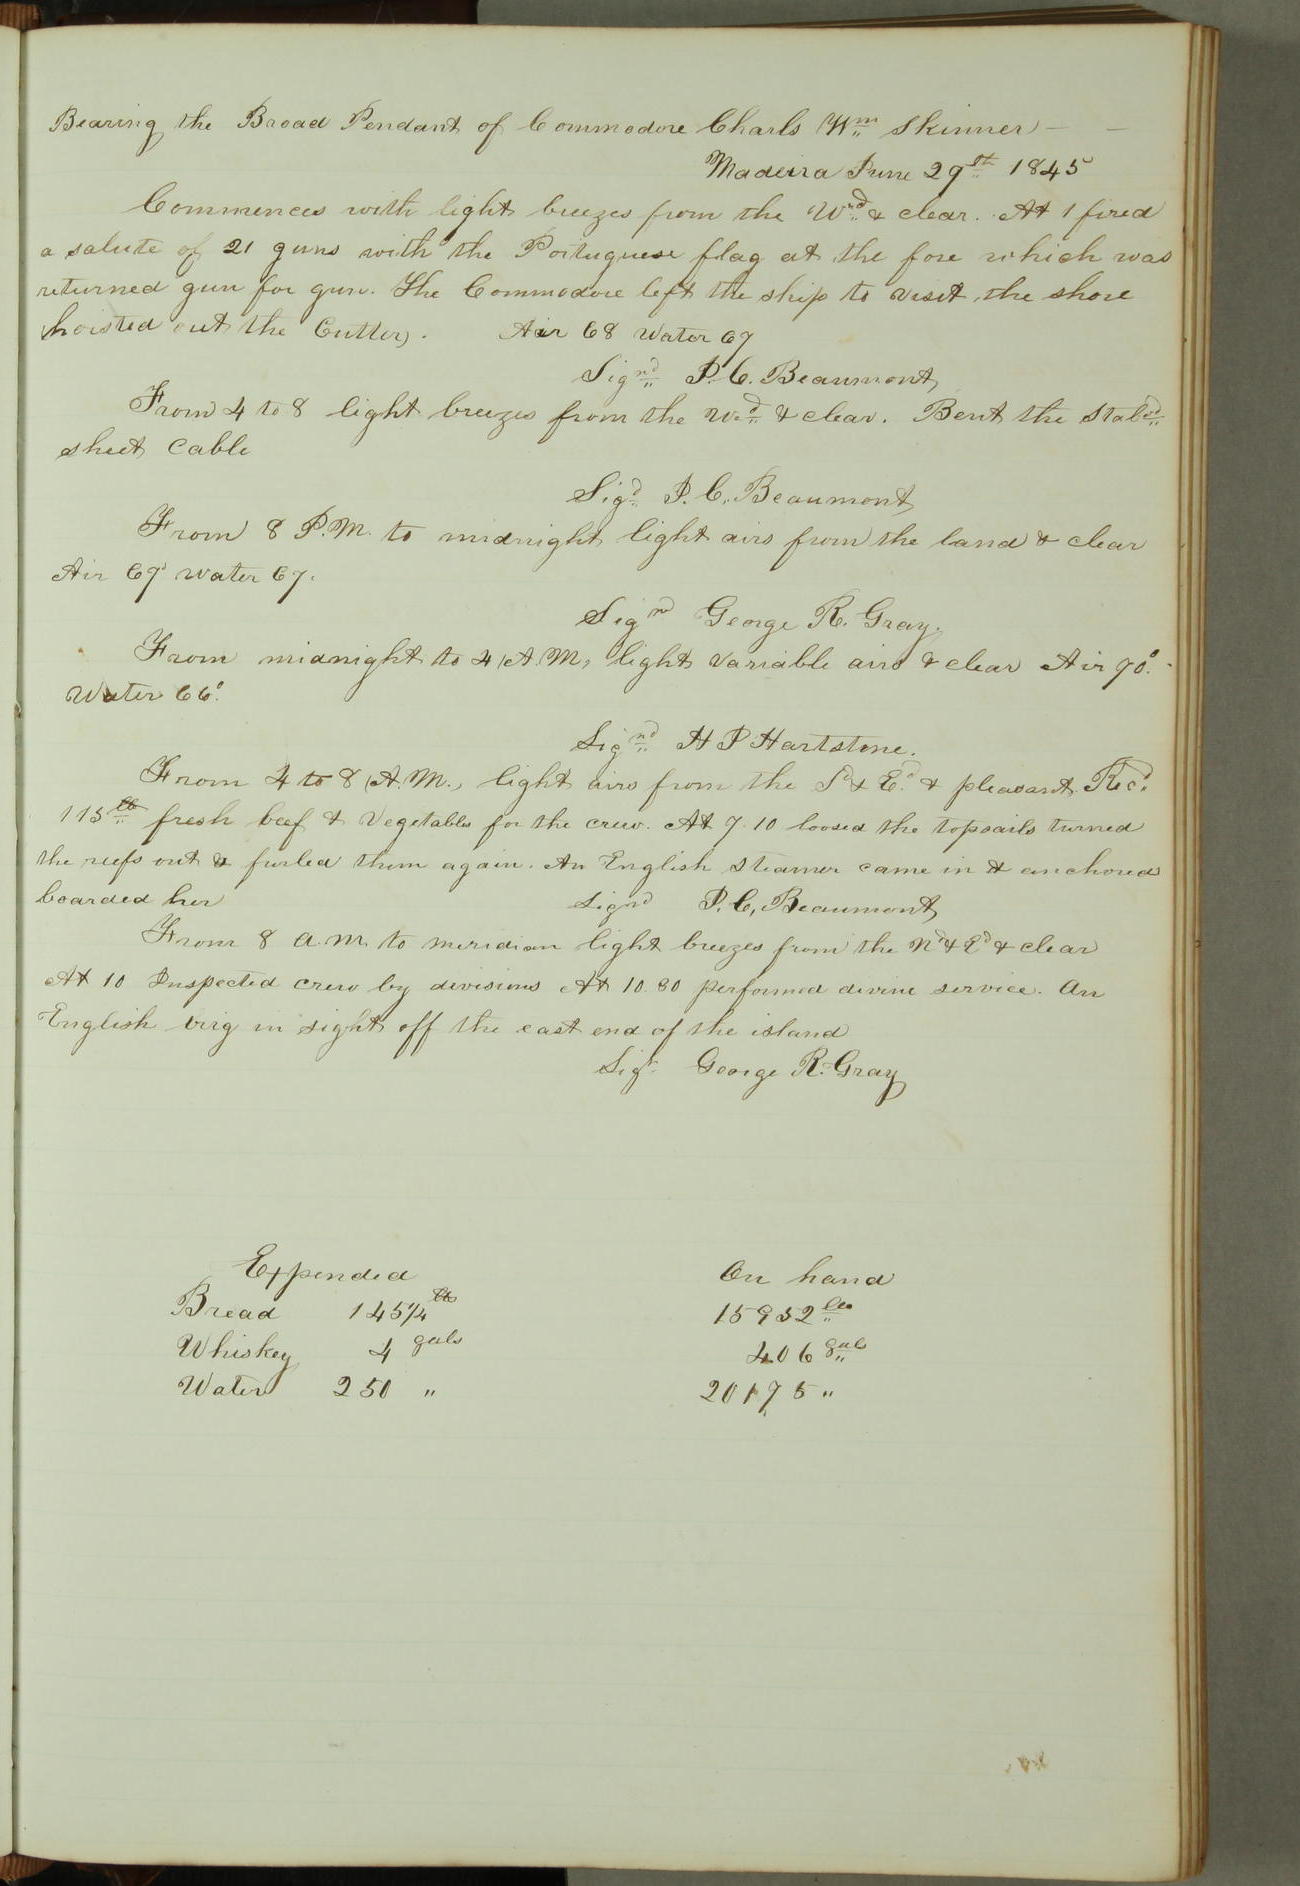 Bearing the Broad Pendant of Commodore Charls Wm Skinner — —
Madeira June 29th 1845
Commences with light breezes from the Wrd & clear. At 1 fired
a salute of 21 guns with the Portuguese flag at the fore which was
returned gun for gun. The Commodore left the ship to visit the shore
hoisted out the Cutter. Air 68 Water 67
Signd J. C. Beaumont
From 4 to 8 light breezes from the Wd & clear. Bent the Stabrd
sheet Cable
Sigd J. C. Beaumont
From 8 P.M. to midnight light airs from the land & clear
Air 69° water 67.
Signd George R. Gray.
From midnight to 4 A.M., light variable airs & clear Air 70°.
Water 66°.
Signd H P Hartstene.
From 4 to 8 A.M., light airs from the Sd & Ed. & pleasant. Recd
115 lb fresh beef & Vegetables for the crew. At 7.10 loosed the topsails turned
the reefs out & furled them again. An English steamer came in & anchored
boarded her Signd J. C. Beaumont
From 8 a.m. to meridian light breezes from the Nd & Ed & clear
At 10 Inspected crew by divisions At 10.30 performed divine service. An
English brig in sight off the east end of the island
Sigd George R. Gray
Expended On hand
Bread 145¼ lb 15952 lbs
Whiskey 4 gals 406 gals
Water 250 " 20175 "